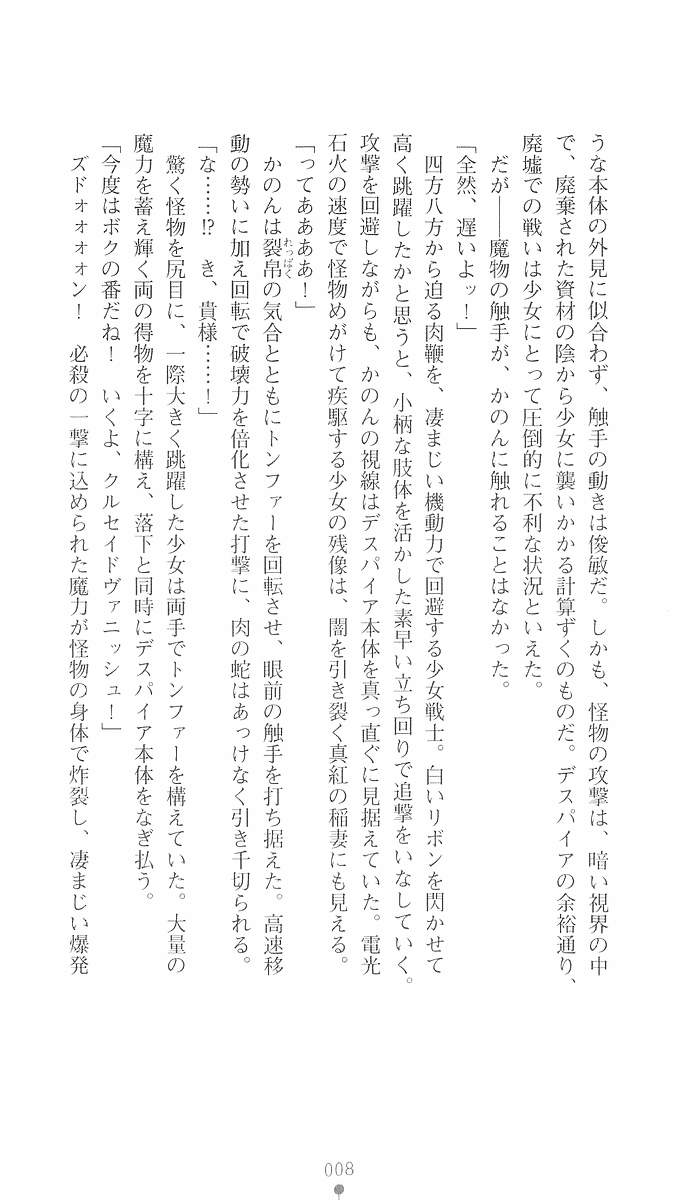 うな本体の外見に似合わず、触手の動きは俊敏だ。しかも、怪物の攻撃は、暗い視界の中
で、廃棄された資材の陰から少女に襲いかかる計算ずくのものだ。デスパイアの余裕通り、
廃墟での戦いは少女にとって圧倒的に不利な状況といえた。
だが――魔物の触手が、かのんに触れることはなかった。
「全然、遅いよッ！」
四方八方から迫る肉鞭を、凄まじい機動力で回避する少女戦士。白いリボンを閃かせて
高く跳躍したかと思うと、小柄な肢体を活かした素早い立ち回りで追撃をいなしていく。
攻撃を回避しながらも、かのんの視線はデスパイア本体を真っ直ぐに見据えていた。電光
石火の速度で怪物めがけて疾駆する少女の残像は、闇を引き裂く真紅の稲妻にも見える。
「ってああああ！」
かのんは裂帛の気合とともにトンファーを回転させ、眼前の触手を打ち据えた。高速移
れっぱく
動の勢いに加え回転で破壊力を倍化させた打撃に、肉の蛇はあっけなく引き千切られる。
「な……!?　き、貴様……！」
驚く怪物を尻目に、一際大きく跳躍した少女は両手でトンファーを構えていた。大量の
魔力を蓄え輝く両の得物を十字に構え、落下と同時にデスパイア本体をなぎ払う。
「今度はボクの番だね！　いくよ、クルセイドヴァニッシュ！」
ズドォォォォン！　必殺の一撃に込められた魔力が怪物の身体で炸裂し、凄まじい爆発
008